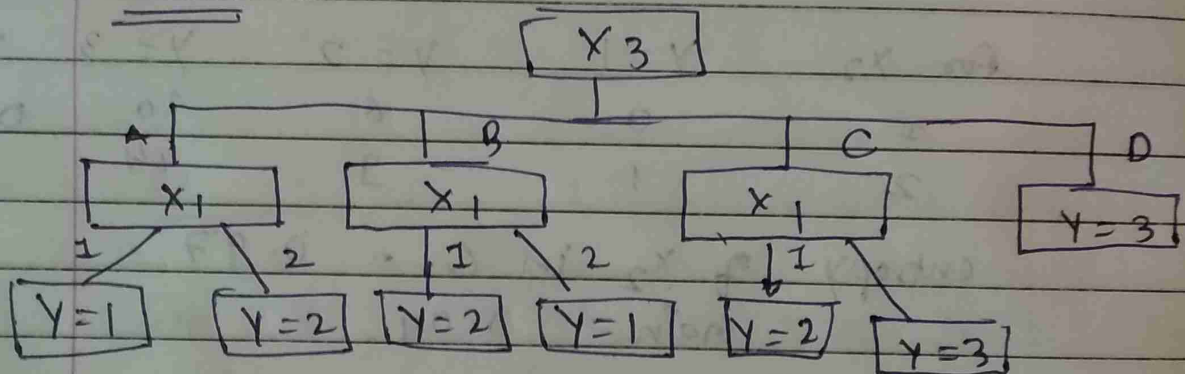 X3
A B C D
X1 X1 X1 Y=3
1 2 1 2 1
Y=1 Y=2 Y=2 Y=1 Y=2 Y=3